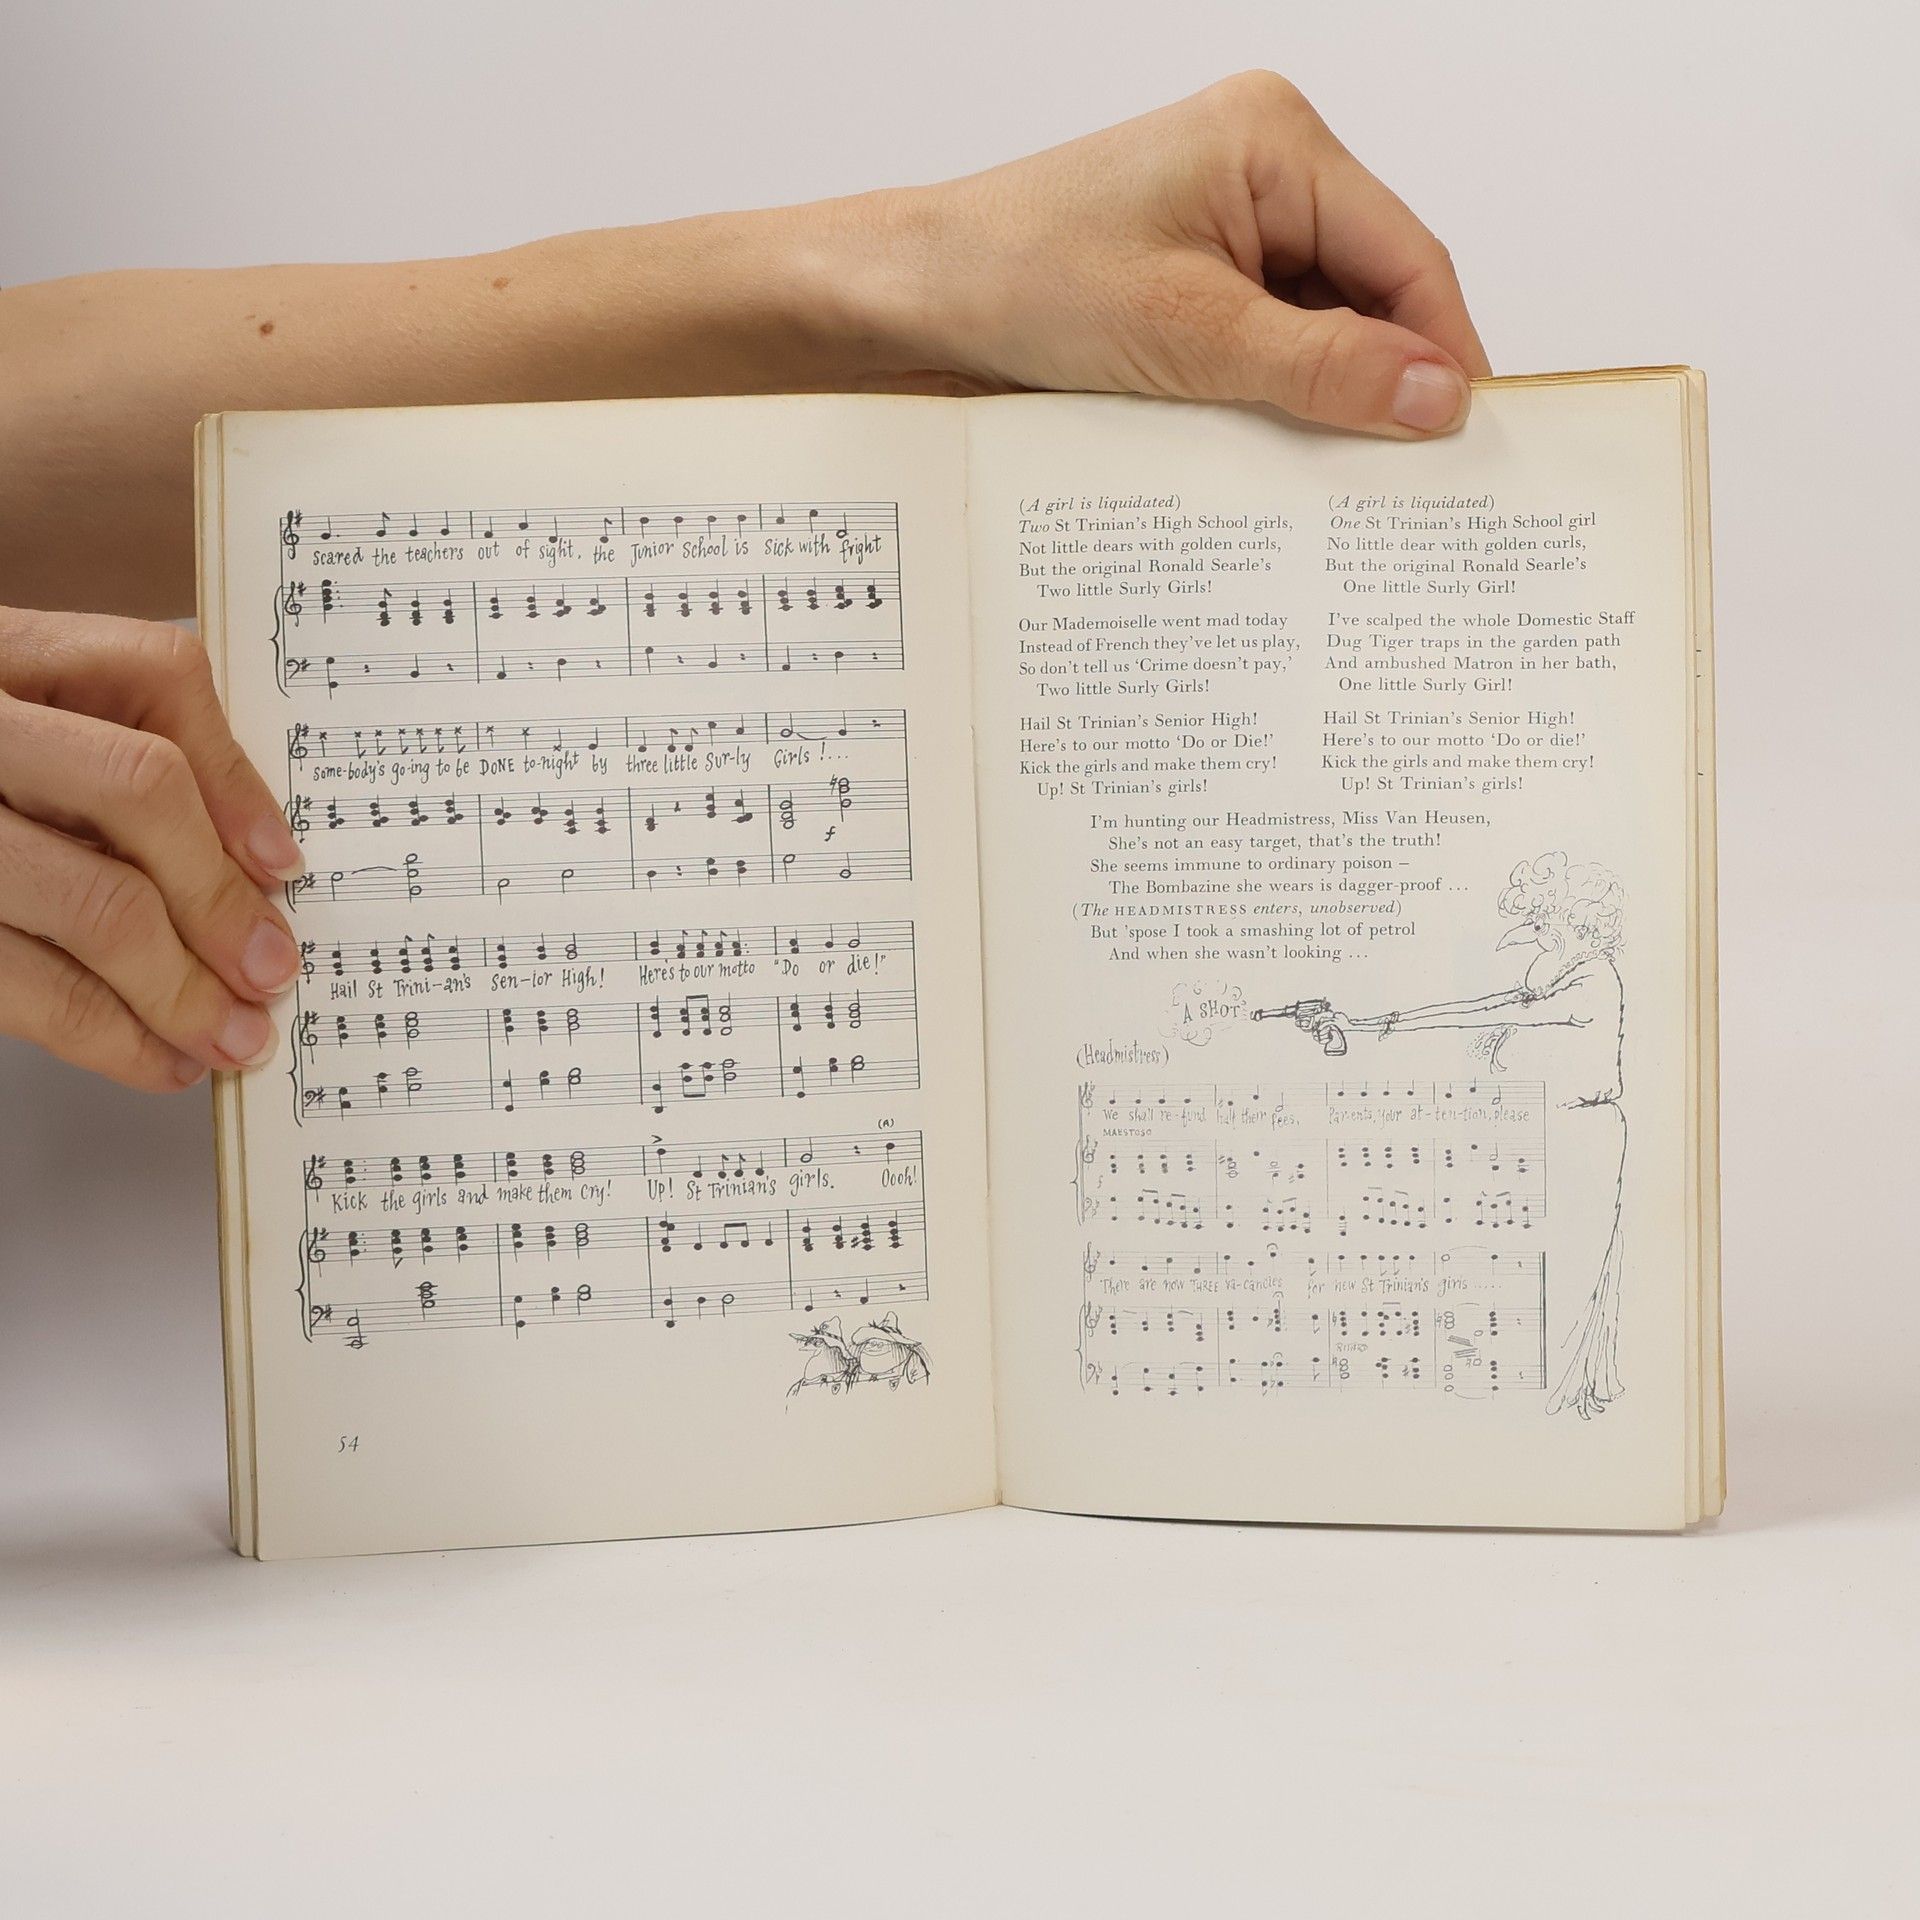 scared the teachers out of sight, the Junior School is Sick with fright
some-body's go-ing to be DONE to-night by three little Sur-ly Girls!...
f
Hail St Trini-an's Sen-ior High! Here's to our motto "Do or die!"
(A)
Kick the girls and make them cry! Up! St Trinian's girls. Oooh!
54
(A girl is liquidated)
Two St Trinian's High School girls,
Not little dears with golden curls,
But the original Ronald Searle's
Two little Surly Girls!
Our Mademoiselle went mad today
Instead of French they've let us play,
So don't tell us 'Crime doesn't pay,'
Two little Surly Girls!
Hail St Trinian's Senior High!
Here's to our motto 'Do or Die!'
Kick the girls and make them cry!
Up! St Trinian's girls!
(A girl is liquidated)
One St Trinian's High School girl
No little dear with golden curls,
But the original Ronald Searle's
One little Surly Girl!
I've scalped the whole Domestic Staff
Dug Tiger traps in the garden path
And ambushed Matron in her bath,
One little Surly Girl!
Hail St Trinian's Senior High!
Here's to our motto 'Do or die!'
Kick the girls and make them cry!
Up! St Trinian's girls!
I'm hunting our Headmistress, Miss Van Heusen,
She's not an easy target, that's the truth!
She seems immune to ordinary poison –
The Bombazine she wears is dagger-proof ...
(The HEADMISTRESS enters, unobserved)
But 'spose I took a smashing lot of petrol
And when she wasn't looking ...
A SHOT
(Headmistress)
We shall re-fund half their fees, Parents, your at-ten-tion, please
MAESTOSO
f
There are now THREE va-cancies for new St Trinian's girls .....
RITARD